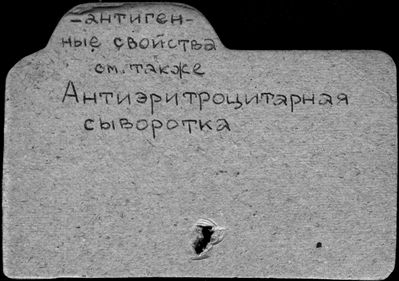 -антиген-
ные свойства
см. также
Антиэритроцитарная
сыворотка